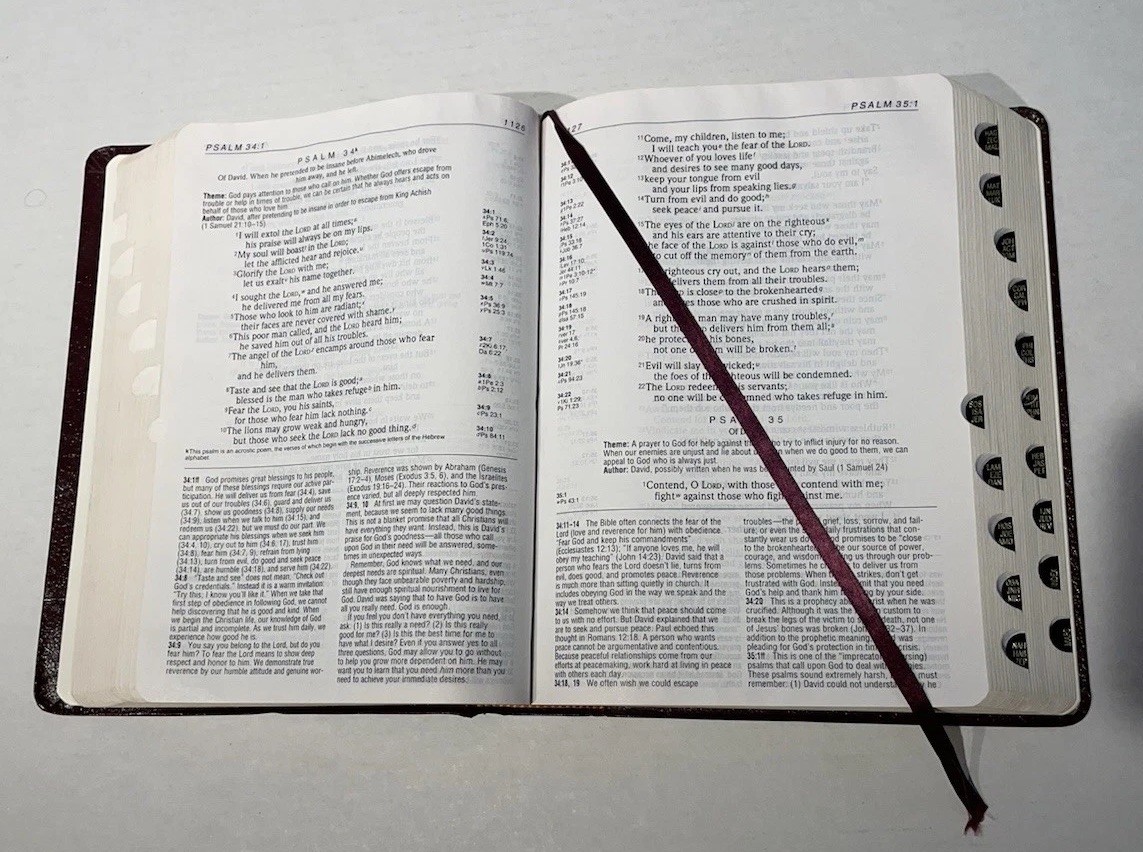 PSALM 34:1
1126
PSALM 34
Of David. When he pretended to be insane before Abimelech, who drove
him away, and he left.
Theme: God pays attention to those who call on him. Whether God offers escape from
trouble or help in times of trouble, we can be certain that he always hears and acts on
behalf of those who love him.
Author: David, after pretending to be insane in order to escape from King Achish
(1 Samuel 21:10–15)
1I will extol the LORD at all times;
his praise will always be on my lips.
2My soul will boast in the LORD;
let the afflicted hear and rejoice.
3Glorify the LORD with me;
let us exalt his name together.
4I sought the LORD, and he answered me;
he delivered me from all my fears.
5Those who look to him are radiant;
their faces are never covered with shame.
6This poor man called, and the LORD heard him;
he saved him out of all his troubles.
7The angel of the LORD encamps around those who fear
him,
and he delivers them.
8Taste and see that the LORD is good;
blessed is the man who takes refuge in him.
9Fear the LORD, you his saints,
for those who fear him lack nothing.
10The lions may grow weak and hungry,
but those who seek the LORD lack no good thing.
This psalm is an acrostic poem, the verses of which begin with the successive letters of the Hebrew
alphabet.
34:1
Ps 71:6
Eph 5:20
34:2
Jer 9:24
1Co 1:31
Ps 119:74
34:3
Lk 1:46
34:4
Mt 7:7
34:5
Ps 36:9
Ps 25:3
34:7
2Ki 6:17
Da 6:22
34:8
1Pe 2:3
Ps 2:12
34:9
Ps 23:1
34:10
Ps 84:11
34:1ff God promises great blessings to his people,
but many of these blessings require our active par-
ticipation. He will deliver us from fear (34:4), save
us out of our troubles (34:6), guard and deliver us
(34:7), show us goodness (34:8), supply our needs
(34:9), listen when we talk to him (34:15), and
redeem us (34:22), but we must do our part. We
can appropriate his blessings when we seek him
(34:4, 10), cry out to him (34:6, 17), trust him
(34:8), fear him (34:7, 9), refrain from lying
(34:13), turn from evil, do good and seek peace
(34:14), are humble (34:18), and serve him (34:22).
34:8 "Taste and see" does not mean, "Check out
God's credentials." Instead it is a warm invitation:
"Try this; I know you'll like it." When we take that
first step of obedience in following God, we cannot
help discovering that he is good and kind. When
we begin the Christian life, our knowledge of God
is partial and incomplete. As we trust him daily, we
experience how good he is.
34:9 You say you belong to the Lord, but do you
fear him? To fear the Lord means to show deep
respect and honor to him. We demonstrate true
reverence by our humble attitude and genuine wor-
ship. Reverence was shown by Abraham (Genesis
17:2–4), Moses (Exodus 3:5, 6), and the Israelites
(Exodus 19:16–24). Their reactions to God's pres-
ence varied, but all deeply respected him.
34:9, 10 At first we may question David's state-
ment, because we seem to lack many good things.
This is not a blanket promise that all Christians will
have everything they want. Instead, this is David's
praise for God's goodness—all those who call
upon God in their need will be answered, some-
times in unexpected ways.
Remember, God knows what we need, and our
deepest needs are spiritual. Many Christians, even
though they face unbearable poverty and hardship,
still have enough spiritual nourishment to live for
God. David was saying that to have God is to have
all you really need. God is enough.
If you feel you don't have everything you need,
ask: (1) Is this really a need? (2) Is this really
good for me? (3) Is this the best time for me to
have what I desire? Even if you answer yes to all
three questions, God may allow you to go without
to help you grow more dependent on him. He may
want you to learn that you need him more than you
need to achieve your immediate desires.
27
PSALM 35:1
11Come, my children, listen to me;
I will teach you the fear of the LORD.
12Whoever of you loves life
and desires to see many good days,
13keep your tongue from evil
and your lips from speaking lies.
14Turn from evil and do good;
seek peace and pursue it.
15The eyes of the LORD are on the righteous
and his ears are attentive to their cry;
he face of the LORD is against those who do evil,
o cut off the memory of them from the earth.
righteous cry out, and the LORD hears them;
elivers them from all their troubles.
18Th is close to the brokenhearted
an es those who are crushed in spirit.
19A righ man may have many troubles,
but th delivers him from them all;
20he protec his bones,
not one o m will be broken.
21Evil will slay wicked;
the foes of th ghteous will be condemned.
22The LORD redee s servants;
no one will be c mned who takes refuge in him.
PSA 35
Of
Theme: A prayer to God for help against th ho try to inflict injury for no reason.
When our enemies are unjust and lie about u en when we do good to them, we can
appeal to God who is always just.
Author: David, possibly written when he was be nted by Saul (1 Samuel 24)
1Contend, O LORD, with those contend with me;
fight against those who figh nst me.
34:13
1Pe 2:22
34:14
34:15
34:16
34:17
Ps 145:19
34:18
34:19
34:20
34:21
Ps 94:23
34:22
Ps 71:23
35:1
Ps 43:1
34:11–14 The Bible often connects the fear of the
Lord (love and reverence for him) with obedience.
"Fear God and keep his commandments"
(Ecclesiastes 12:13); "If anyone loves me, he will
obey my teaching" (John 14:23). David said that a
person who fears the Lord doesn't lie, turns from
evil, does good, and promotes peace. Reverence
is much more than sitting quietly in church. It
includes obeying God in the way we speak and the
way we treat others.
34:14 Somehow we think that peace should come
to us with no effort. But David explained that we
are to seek and pursue peace. Paul echoed this
thought in Romans 12:18. A person who wants
peace cannot be argumentative and contentious.
Because peaceful relationships come from our
efforts at peacemaking, work hard at living in peace
with others each day.
34:18, 19 We often wish we could escape
troubles—the p grief, loss, sorrow, and fail-
ure; or even the aily frustrations that con-
stantly wear us do d promises to be "close
to the brokenhearte be our source of power,
courage, and wisdom, g us through our prob-
lems. Sometimes he ch to deliver us from
those problems. When t strikes, don't get
frustrated with God. Instea it that you need
God's help and thank him g by your side.
34:20 This is a prophecy a rist when he was
crucified. Although it was the custom to
break the legs of the victim to s death, not one
of Jesus' bones was broken (Joh 32–37). In
addition to the prophetic meaning, was
pleading for God's protection in time risis.
35:1ff This is one of the "imprecator rsing)
psalms that call upon God to deal wit
These psalms sound extremely harsh, must
remember: (1) David could not understa he
HAG
ZEC
MAL
MAT
MAR
LUK
JOH
ACT
ROM
COR
GAL
EPH
PHI
COL
THS
TIM
TIT
PHN
SOS
ISA
JER
LAM
EZE
DAN
HEB
JAS
PET
HOS
JOE
AMO
JUD
REV
OBA
JON
MIC
INDEX
NAH
HAB
ZEP
MAPS